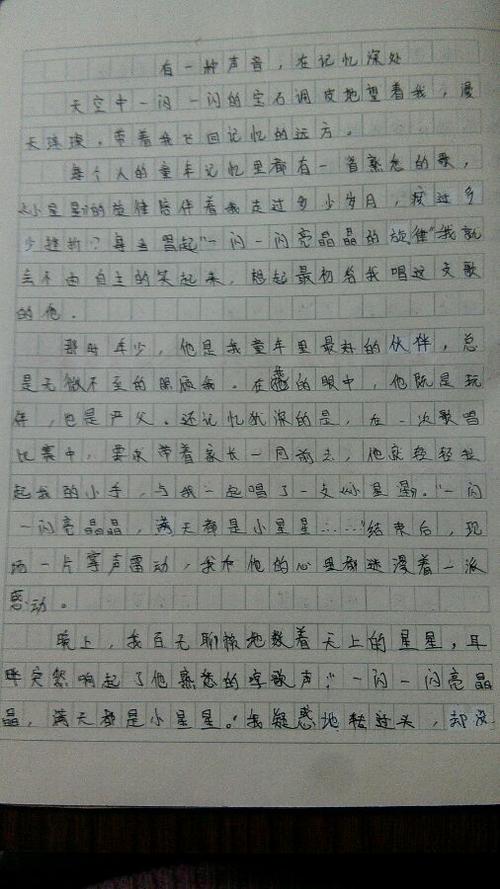 有一种声音，在记忆深处
天空中一闪一闪的宝石调皮地望着我，漫
天璀璨，带着我飞回记忆的远方。
每个人的童年记忆里都有一首熟悉的歌，
《小星星》的旋律陪伴着我走过多少岁月，度过多
少挫折？每当唱起“一闪一闪亮晶晶的旋律”我就
会不由自主的笑起来，想起最初给我唱这支歌
的他。
那时年少，他是我童年里最好的伙伴，总
是无微不至的照顾我。在我的眼中，他既是玩
伴，也是严父。还记忆犹深的是，在一次歌唱
比赛中，要求带着家长一同前去，他就轻轻拉
起我的小手，与我一起唱了一支《小星星》。“一闪
一闪亮晶晶，满天都是小星星……”结束后，现
场一片掌声雷动，我和他的心里都弥漫着一派
感动。
晚上，我百无聊赖地数着天上的星星，耳
畔突然响起了他熟悉的哼歌声：“一闪一闪亮晶
晶，满天都是小星星。”我疑惑地转过头，却没